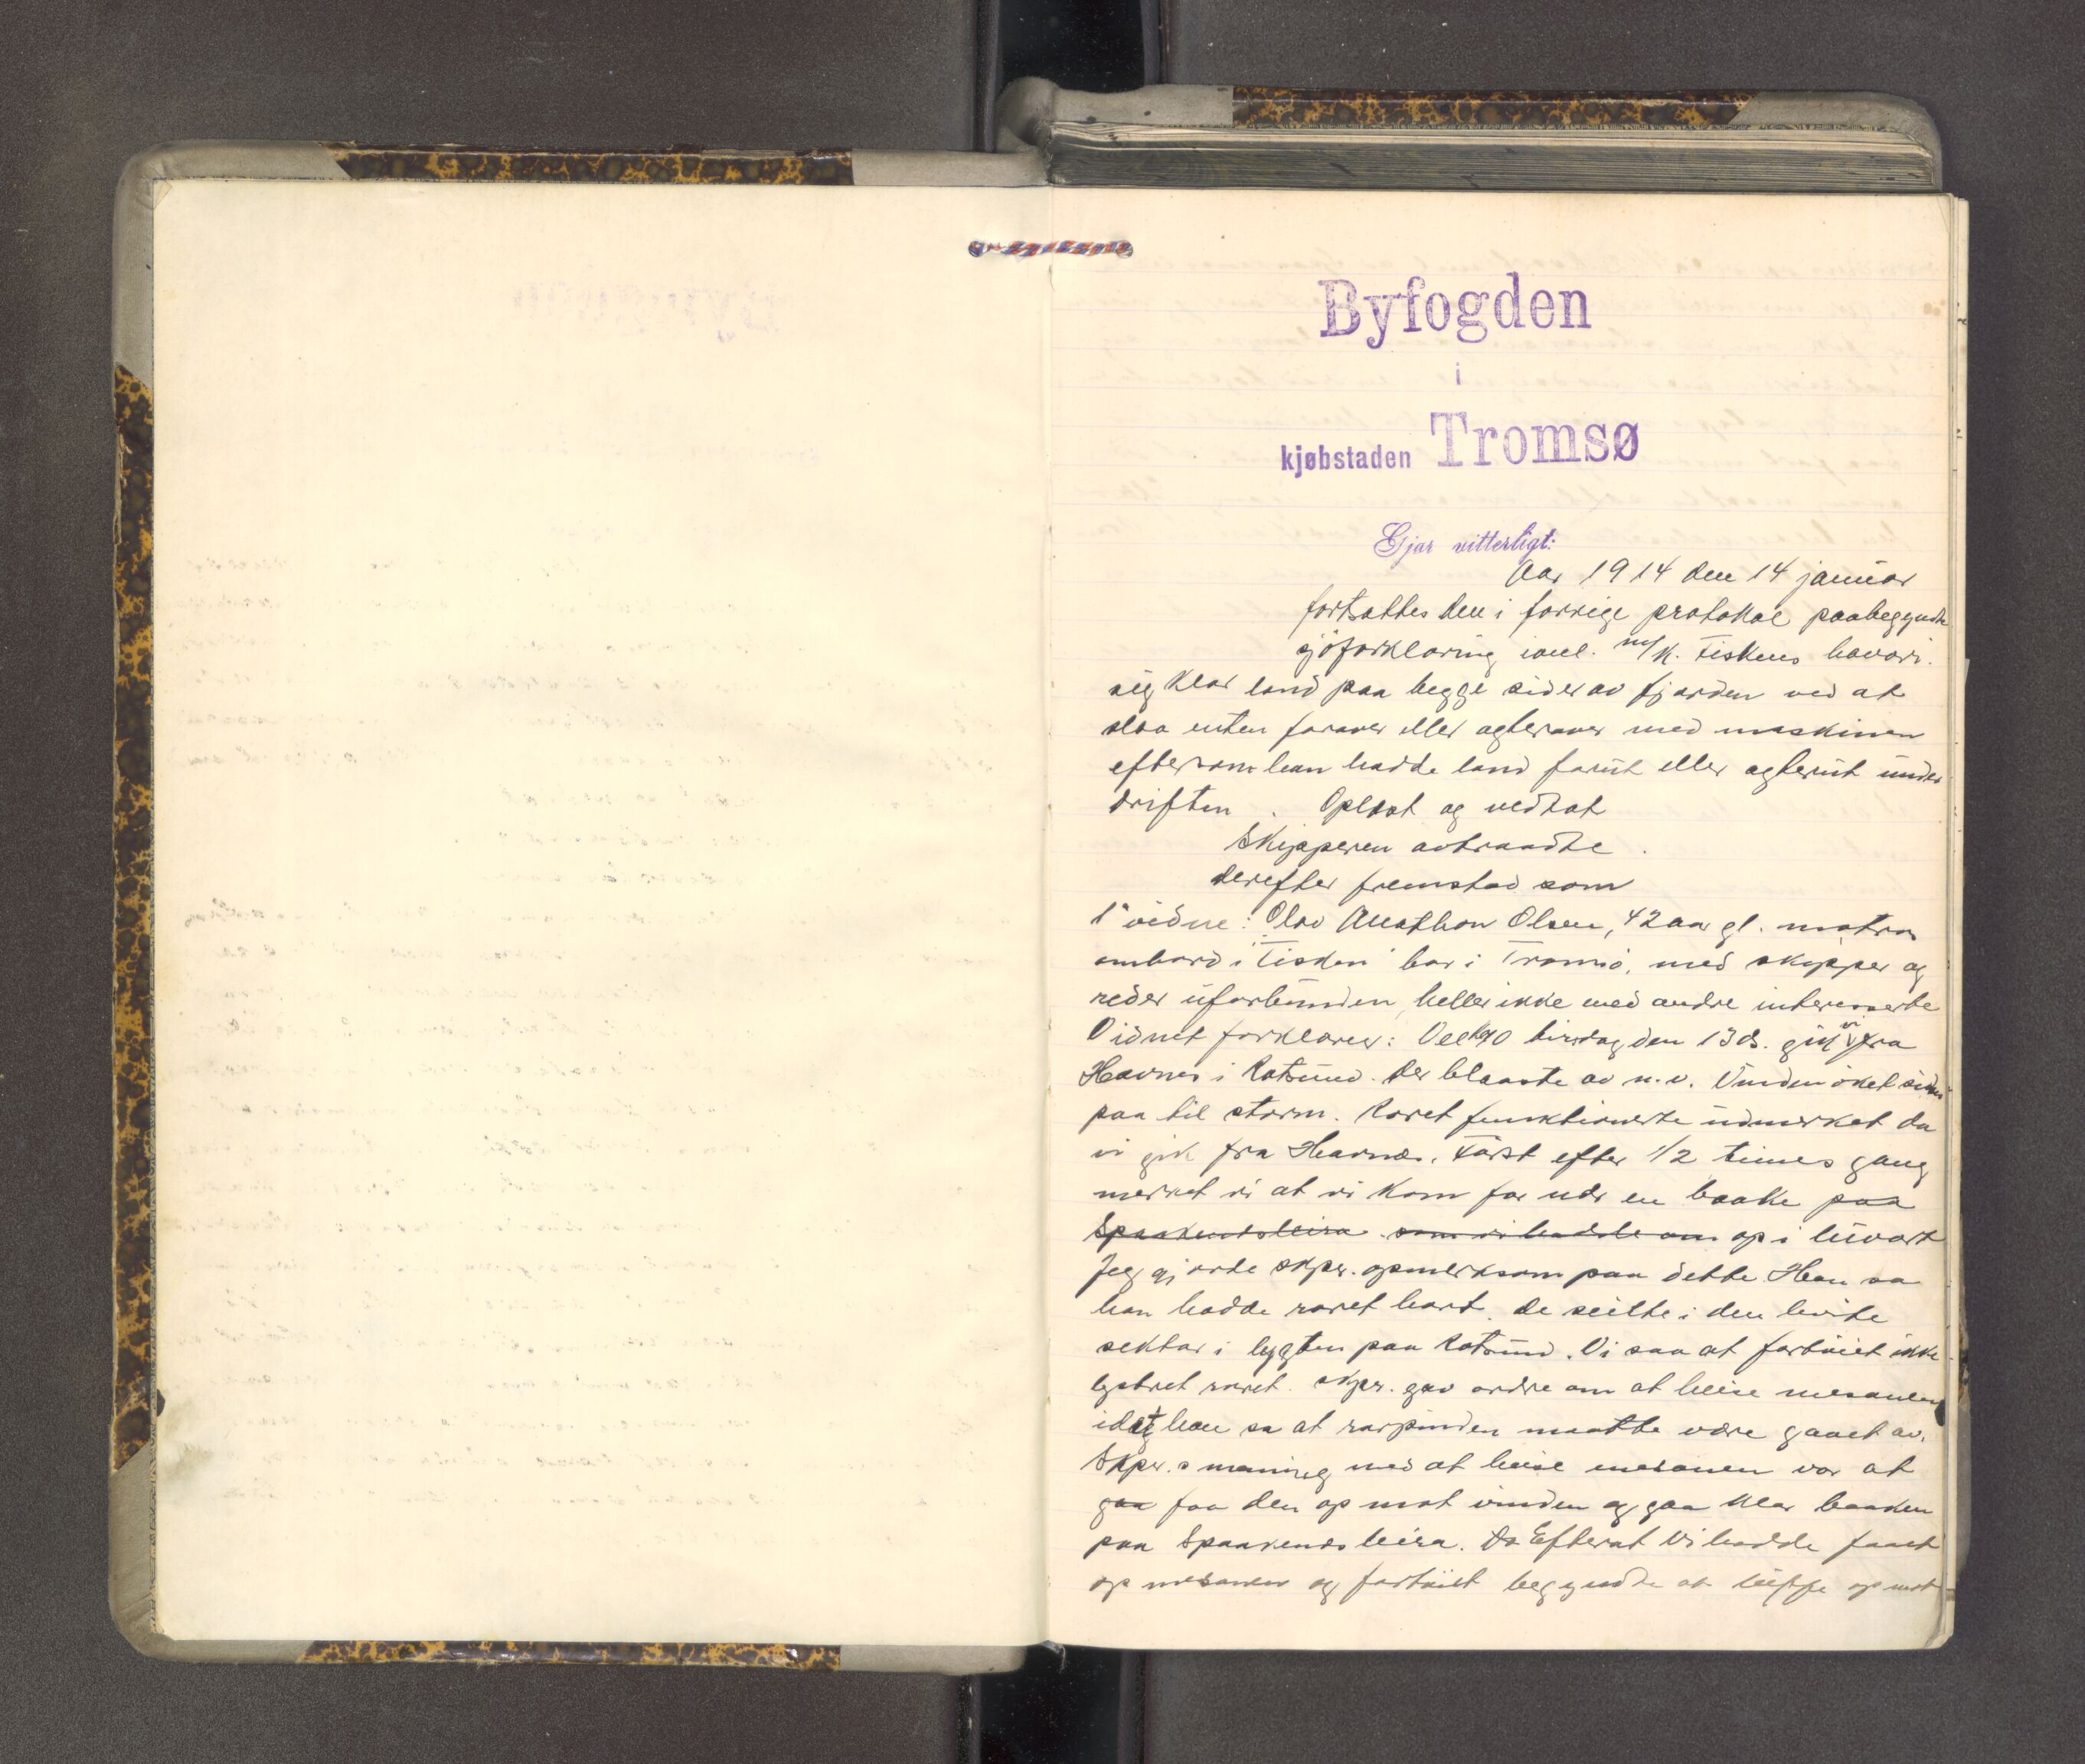 Byfogden
i
kjøbstaden Tromsø
Gjør vitterligt:
Aar 1914 den 14 januar
fortsattes den i forrige protokol paabegyndte
sjøforklaring m/k. Fiskens havari.
sig klar land paa begge sider av fjorden ved at
slaa enten forover eller agterover med maskinen
eftersom han hadde land forut eller agterut under
driften. Oplæst og vedtat
Skipperen avtraadte.
Derefter fremstod som
1' vidne: Olav Olsen, 42 aar gl. matros
ombord i "Fisken" bor i Tromsø, med skipper og
reder uforbunden, heller ikke med andre interesserte
Vidnet forklarer: 10 tirsdag den 13 ds. gik vi fra
Havnes i Rotsund. Der blaaste av n.v. Vinden øket siden
paa til storm. Roret funktionerte udmerket da
vi gik fra Havnes. Først efter 1/2 times gang
merket vi at vi kom for nær en baake paa
Spaakenesleira som vi hadde om op i luvart
Jeg gjorde skpr. opmerksom paa dette. Han sa
han hadde roret hart. De seilte i den hvite
sektor i lygten paa Rotsund. Vi saa at fartøiet ikke
lystret roret. Skpr. gav ordre om at heise mesanen
idet han sa at rorpinden maatte være gaaet av.
Skpr.s mening med at heise mesanen var at
gaa faa den op mot vinden og gaa klar baaken
paa Spaakenesleira. Da Efterat vi hadde faaet
op mesanen og fartøiet begyndte at luffe op mot